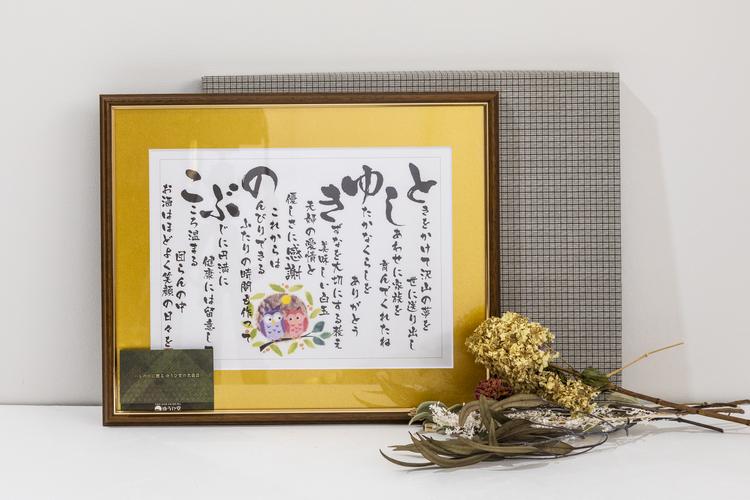 ときをかけて沢山の夢を
世に送り出し
しあわせに家族を
育んでくれたね
ゆたかなくらしを
ありがとう
きずなを大切にする教え
美味しい白玉
夫婦の愛情と
優しさに感謝
これからは
のんびりできる
ふたりの時間も作って
ぶじに円満に
健康には留意し
こころ温まる
団らんの中
お酒はほどよく笑顔の日々を
ゆうひ堂